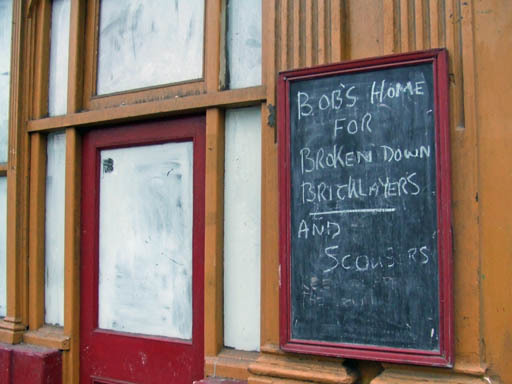 BOB'S HOME
FOR
BROKEN DOWN
BRICKLAYER'S
AND
SCOUSERS
THE